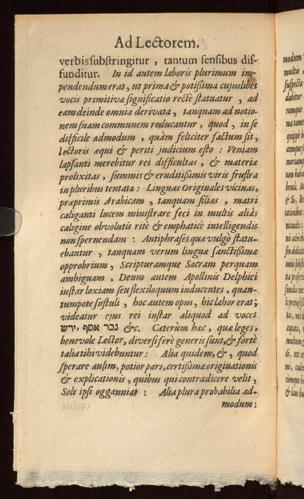 Ad Lectorem.
verbis substringitur, tantum sensibus dif-
funditur. In id autem laboris plurimum im-
pendendum erat, ut prima & potissima cujuslibet
vocis primitivæ significatio rectè statuatur, ad
eam deinde omnia derivata, tanquam ad notio-
nem suam communem reducantur, quod, in se
difficile admodum, quàm feliciter factum sit,
lectoris aequi & periti judicium esto : Veniam
lapsanti merebitur rei difficultas, & materiæ
prolixitas, summis & eruditissimis viris frustra
in pluribus tentata : Linguas Originales vicinas,
præprimis Arabicam, tanquam filias, matri
caliganti lucem ministrare feci in multis aliàs
caligine obvolutis ritè & emphaticè intelligendis
non spernendam : Antiphrases quæ vulgò statu-
ebantur, tanquam verum linguæ sanctissimæ
opprobrium, Scripturamque Sacram perquam
ambiguam, Deum autem Apollinis Delphici
instar loxiam seu flexiloquum inducentes, quan-
tum pote sustuli, hoc autem opus, hic labor erat;
videatur ejus rei instar aliquod ad voces
נכר אסף, ירש &c. Caterum hac, qua leges,
benevole Lector, diversi ferè generis sunt, & fortè
talia tibi videbuntur : Alia quidem, &, quod
sperare ausim, potior pars, certissima originationis
& explicationis, quibus qui contradicere velit,
Soli ipsi oggannĭat : Alia plura probabilia ad-
modum: